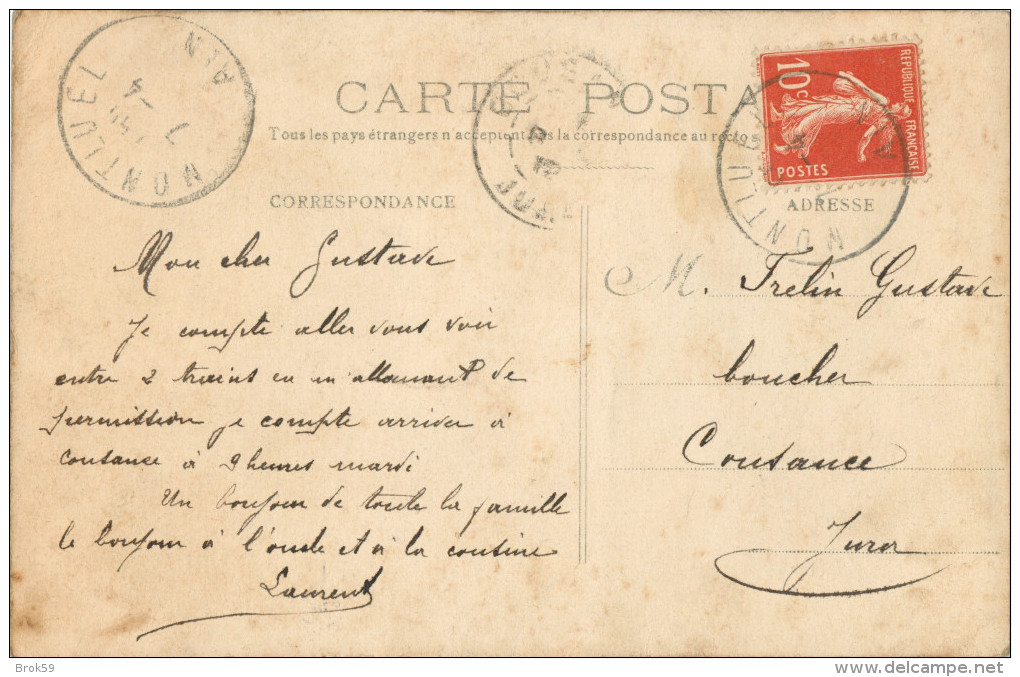 MONTLUEL
AIN
7 - 4
CARTE POSTA
Tous les pays étrangers n'acceptent pas la correspondance au recto
REPUBLIQUE FRANÇAISE
10c
POSTES
MONTLUEL
CORRESPONDANCE
ADRESSE
Mon cher Gustave
Je compte aller vous voir
entre 2 trains en m'allanant de
permission je compte arriver à
coutance à 9 heures mardi
Un bonjour de toute la famille
le bonjour à l'oncle et à la cousine
Laurent
M. Trelin Gustave
boucher
Coutance
Jura
Brok59
www.delcampe.net